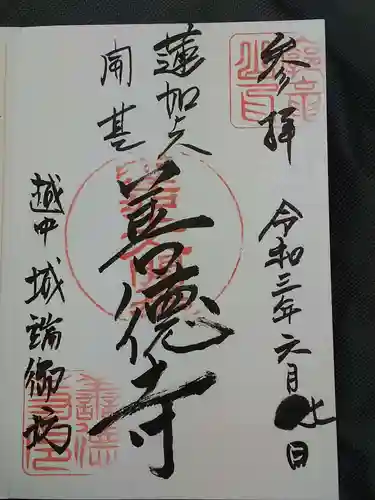 参拝
令和三年六月七日
蓮如上人
開基
善德寺
越中城端御坊